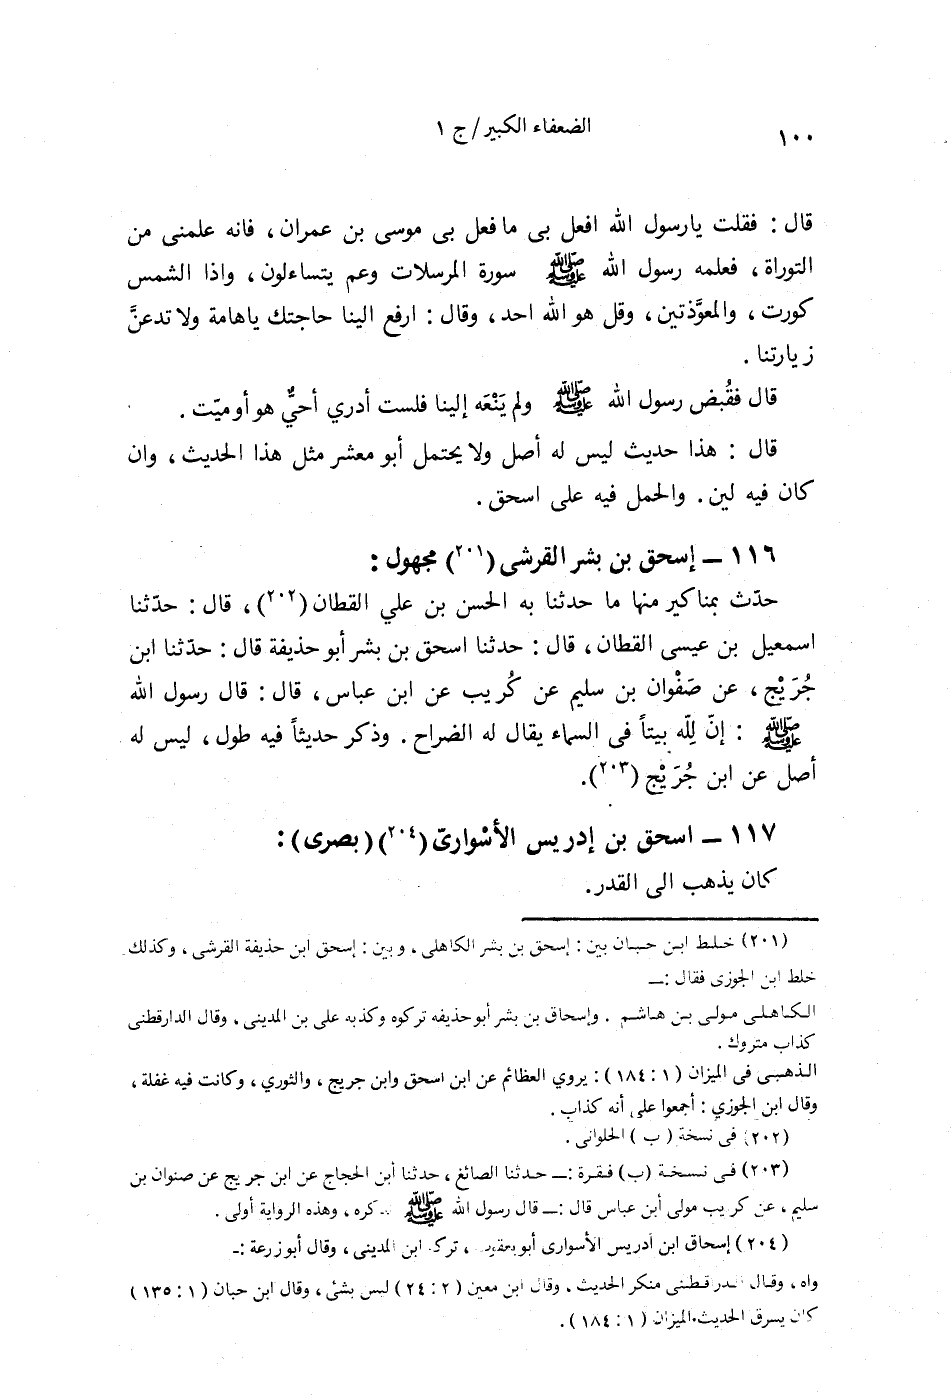 ١٠٠
الضعفاء الكبير/ ج ١
قال : فقلت يارسول الله افعل بى مافعل بى موسى بن عمران ، فانه علمنى من
التوراة ، فعلمه رسول الله ﷺ سورة المرسلات وعم يتساءلون ، واذا الشمس
كورت ، والمعوَّذتين ، وقل هو الله احد ، وقال : ارفع الينا حاجتك ياهامة ولا تدعنَّ
زيارتنا .
قال فقُبض رسول الله ﷺ ولم يَنْعَه إلينا فلست أدري أحيٌّ هو أو ميّت .
قال : هذا حديث ليس له أصل ولا يحتمل أبو معشر مثل هذا الحديث ، وان
كان فيه لين . والحمل فيه على اسحق .
١١٦ ــ إسحق بن بشر القرشى (٢٠١) مجهول :
حدّث بمناكير منها ما حدثنا به الحسن بن علي القطان (٢٠٢) ، قال : حدّثنا
اسمعيل بن عيسى القطان ، قال : حدثنا اسحق بن بشر أبو حذيفة قال : حدّثنا ابن
جُرَيْج ، عن صَفْوان بن سليم عن كُريب عن ابن عباس ، قال : قال رسول الله
ﷺ : إنّ لِلّه بيتاً فى السماء يقال له الضراح . وذكر حديثاً فيه طول ، ليس له
أصل عن ابن جُرَيْج (٢٠٣).
١١٧ ــ اسحق بن إدريس الأسْوارىّ (٢٠٤) (بصرى) :
كان يذهب الى القدر.
(٢٠١) خلط ابن حبان بين : إسحق بن بشر الكاهلى ، وبين : إسحق ابن حذيفة القرشى ، وكذلك
خلط ابن الجوزى فقال :ــ
الكاهلى مولى بن هاشم . وإسحاق بن بشر أبو حذيفه تركوه وكذبه على بن المدينى ، وقال الدارقطنى
كذاب متروك .
الذهبى فى الميزان (١ : ١٨٤) : يروي العظائم عن ابن اسحق وابن جريج ، والثوري ، وكانت فيه غفلة ،
وقال ابن الجوزي : أجمعوا على أنه كذاب .
(٢٠٢) فى نسخة (ب) الحلوانى .
(٢٠٣) فى نسخة (ب) فقرة :ــ حدثنا الصائغ ، حدثنا أبن الحجاج عن ابن جريج عن صنوان بن
سليم ، عن كريب مولى أبن عباس قال :ــ قال رسول الله ﷺ كره ، وهذه الرواية أولى .
(٢٠٤) إسحاق ابن أدريس الأسوارى أبو يعقوب ، تركه ابن المدينى ، وقال أبو زرعة :ــ
واه ، وقال الدرقطنى منكر الحديث . وقال ابن معين (٢ : ٢٤) ليس بشئ ، وقال ابن حبان (١ : ١٣٥)
كان يسرق الحديث . الميزان (١ : ١٨٤) .